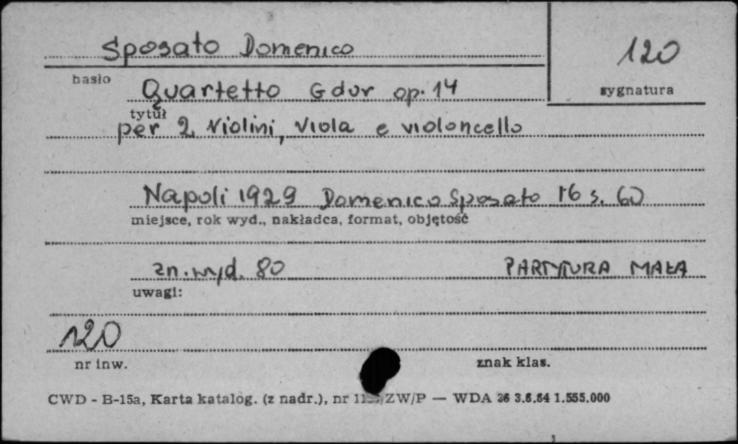 Sposato Domenico
120
hasło
sygnatura
Quartetto G dur op. 14
tytuł
per 2 Violini, Viola e violoncello
Napoli 1929 Domenico Sposato 16 s. 60
miejsce, rok wyd., nakładca, format, objętość
zn. wyd. 80 PARTYTURA MAŁA
uwagi:
120
nr inw.
znak klas.
CWD - B-15a, Karta katalog. (z nadr.), nr ZW/P — WDA 26 3.6.64 1.555.000